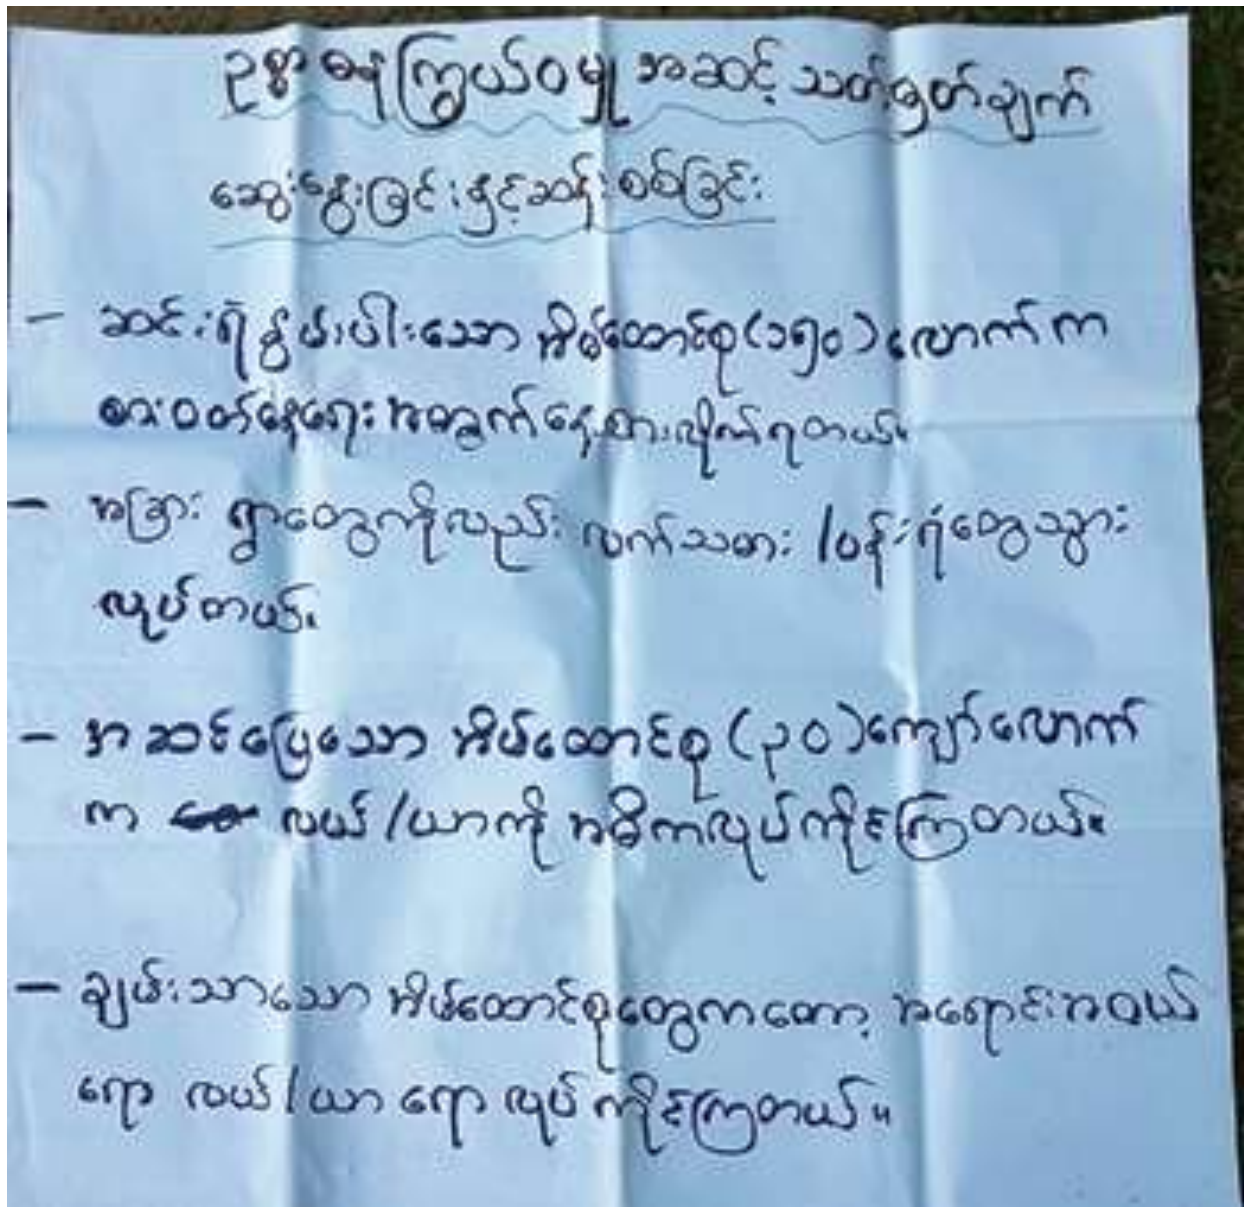 ဥစ္စာဓနကြွယ်ဝမှု အဆင့် သတ်မှတ်ချက်
ဆွေးနွေးခြင်းနှင့်ဆန်းစစ်ခြင်း
- ဆင်းရဲနွမ်းပါးသော အိမ်ထောင်စု(၁၅၀)လောက်က
စားဝတ်နေရေးအတွက်နေ့စားလိုက်ရတယ်။
- အခြား ရွာတွေကိုလည်း လက်သမား /ပန်းရံတွေသွား
လုပ်တယ်။
- အဆင်ပြေသော အိမ်ထောင်စု (၃၀)ကျော်လောက်
က လယ် /ယာကို အဓိကလုပ်ကိုင်ကြတယ်။
- ချမ်းသာသော အိမ်ထောင်စုတွေကတော့ အရောင်းအဝယ်
ရော လယ်/ယာ ရော လုပ်ကိုင်ကြတယ်။